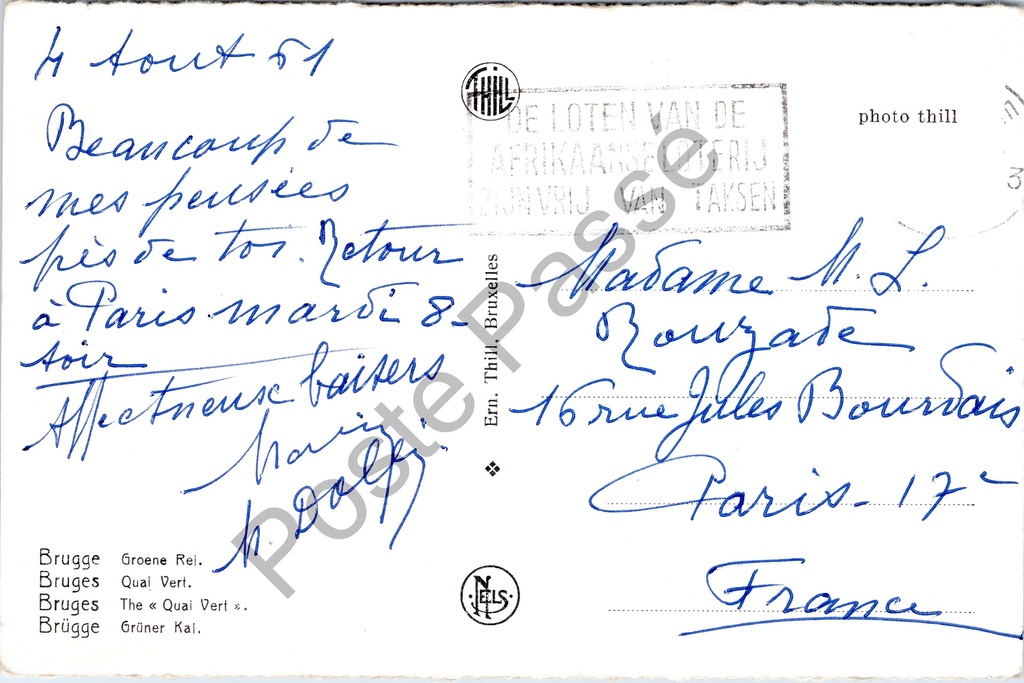 4 Aout 61
Beaucoup de
mes pensées
près de toi. Retour
à Paris mardi 8-
soir
Affectueux baisers
M. Dolfi
Brugge Groene Rei.
Bruges Quai Vert.
Bruges The « Quai Vert ».
Brügge Grüner Kai.
THILL
DE LOTEN VAN DE
AFRIKAANSE LOTERIJ
ZIJN VRIJ VAN TAKSEN
Ern. Thill, Bruxelles
NELS
photo thill
3
Madame M. L.
Rouzade
16 rue Jules Bourdais
Paris-17e
France
Poste Passé